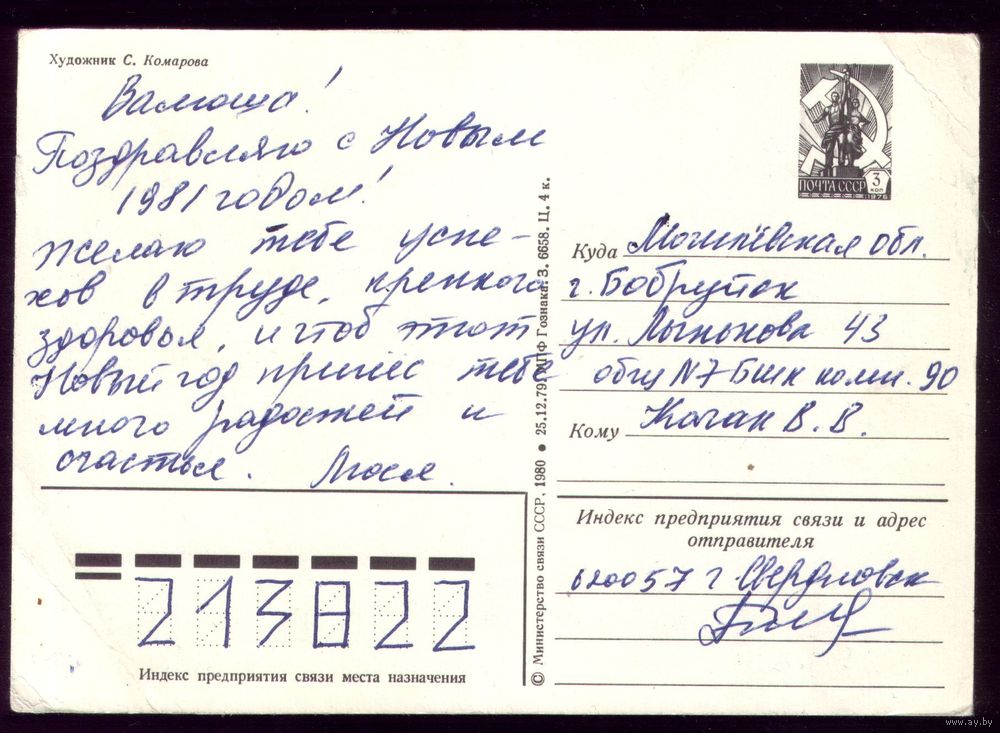 Художник С. Комарова
Валюша!
Поздравляю с Новым
1981 годом!
Желаю тебе успе-
хов в труде, крепкого
здоровья, и чтоб этот
Новый год принес тебе
много радостей и
счастья. Люся.
ПОЧТА СССР 3 КОП
1976
Куда Могилёвская обл.
г. Бобруйск
ул. Лынькова 43
общ N7 БШК комн. 90
Кому Коган В. В.
Индекс предприятия связи и адрес
отправителя
620057 г Свердловск
213822
Индекс предприятия связи места назначения
© Министерство связи СССР, 1980 • 25.12.79. МПФ Гознака. З. 6658. Ц. 4 к.
www.ay.by